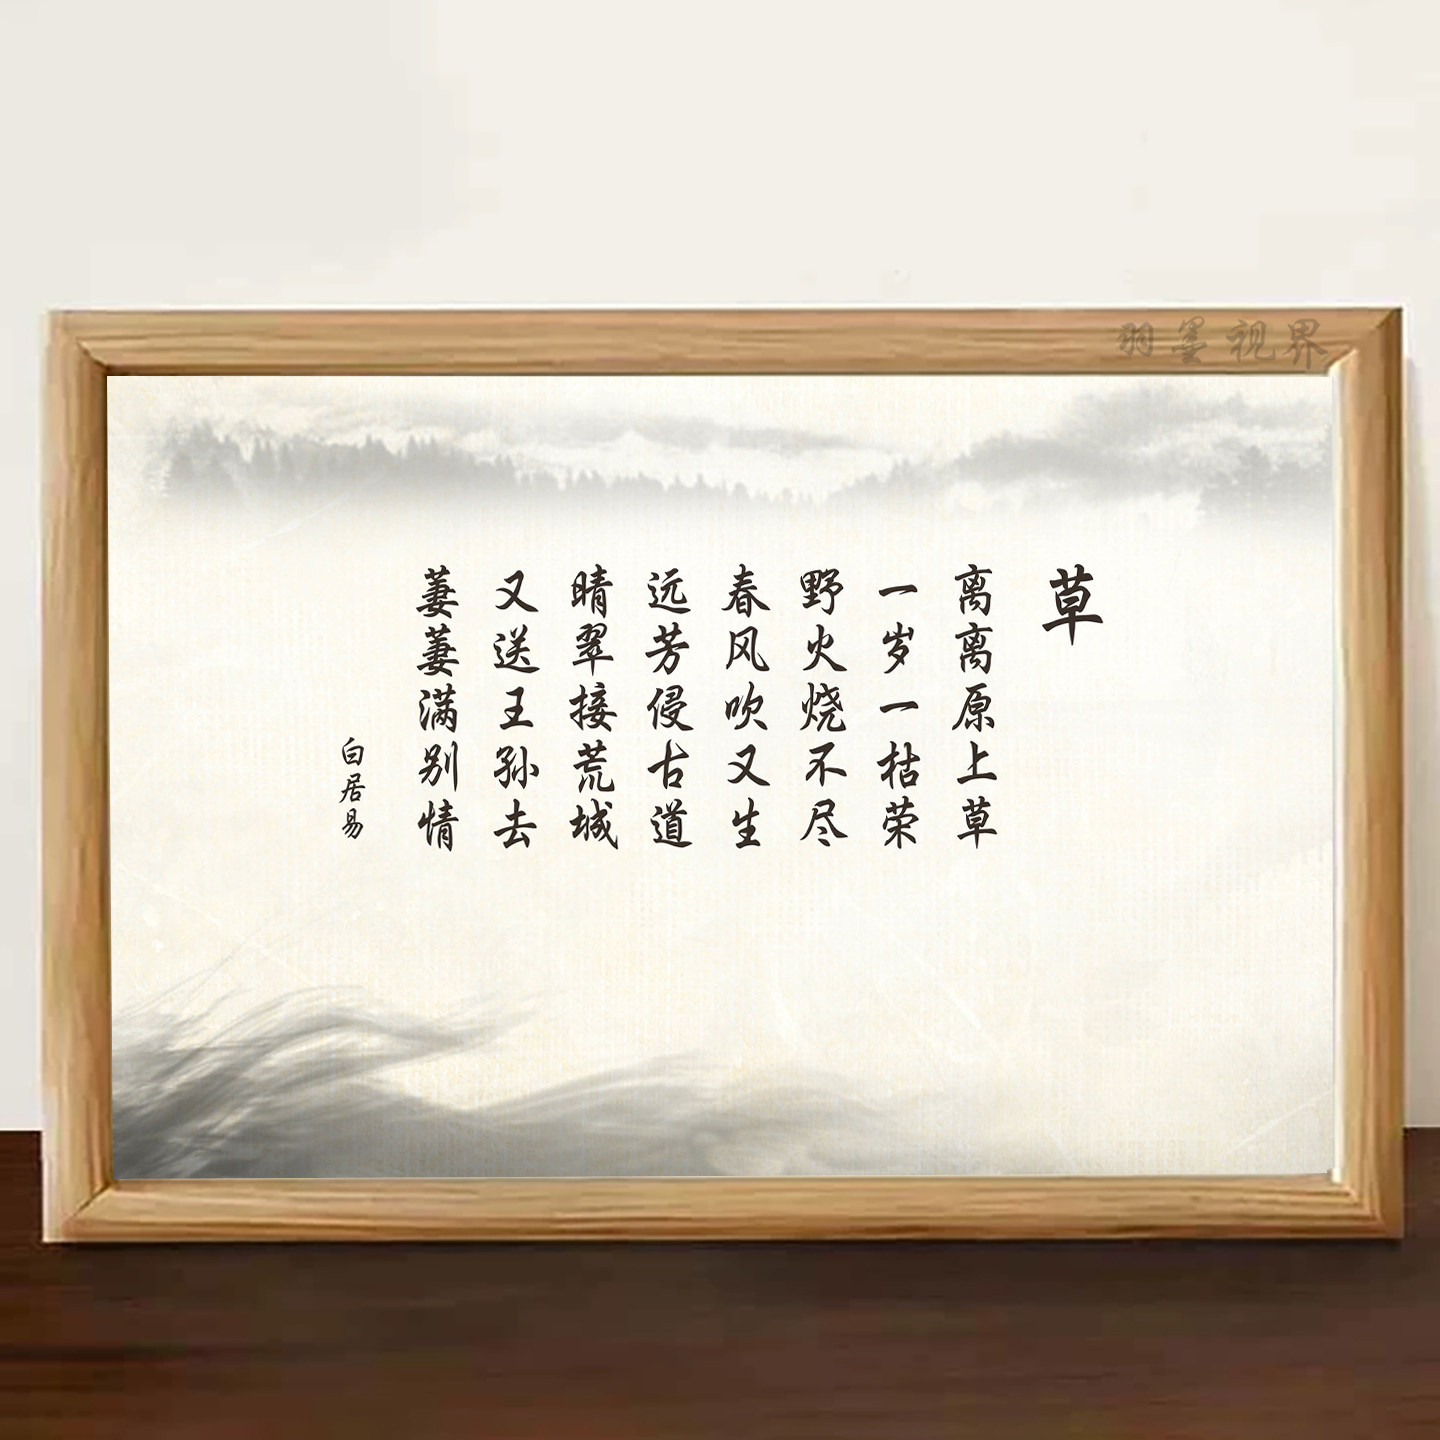 草
离离原上草
一岁一枯荣
野火烧不尽
春风吹又生
远芳侵古道
晴翠接荒城
又送王孙去
萋萋满别情
白居易
羽墨视界